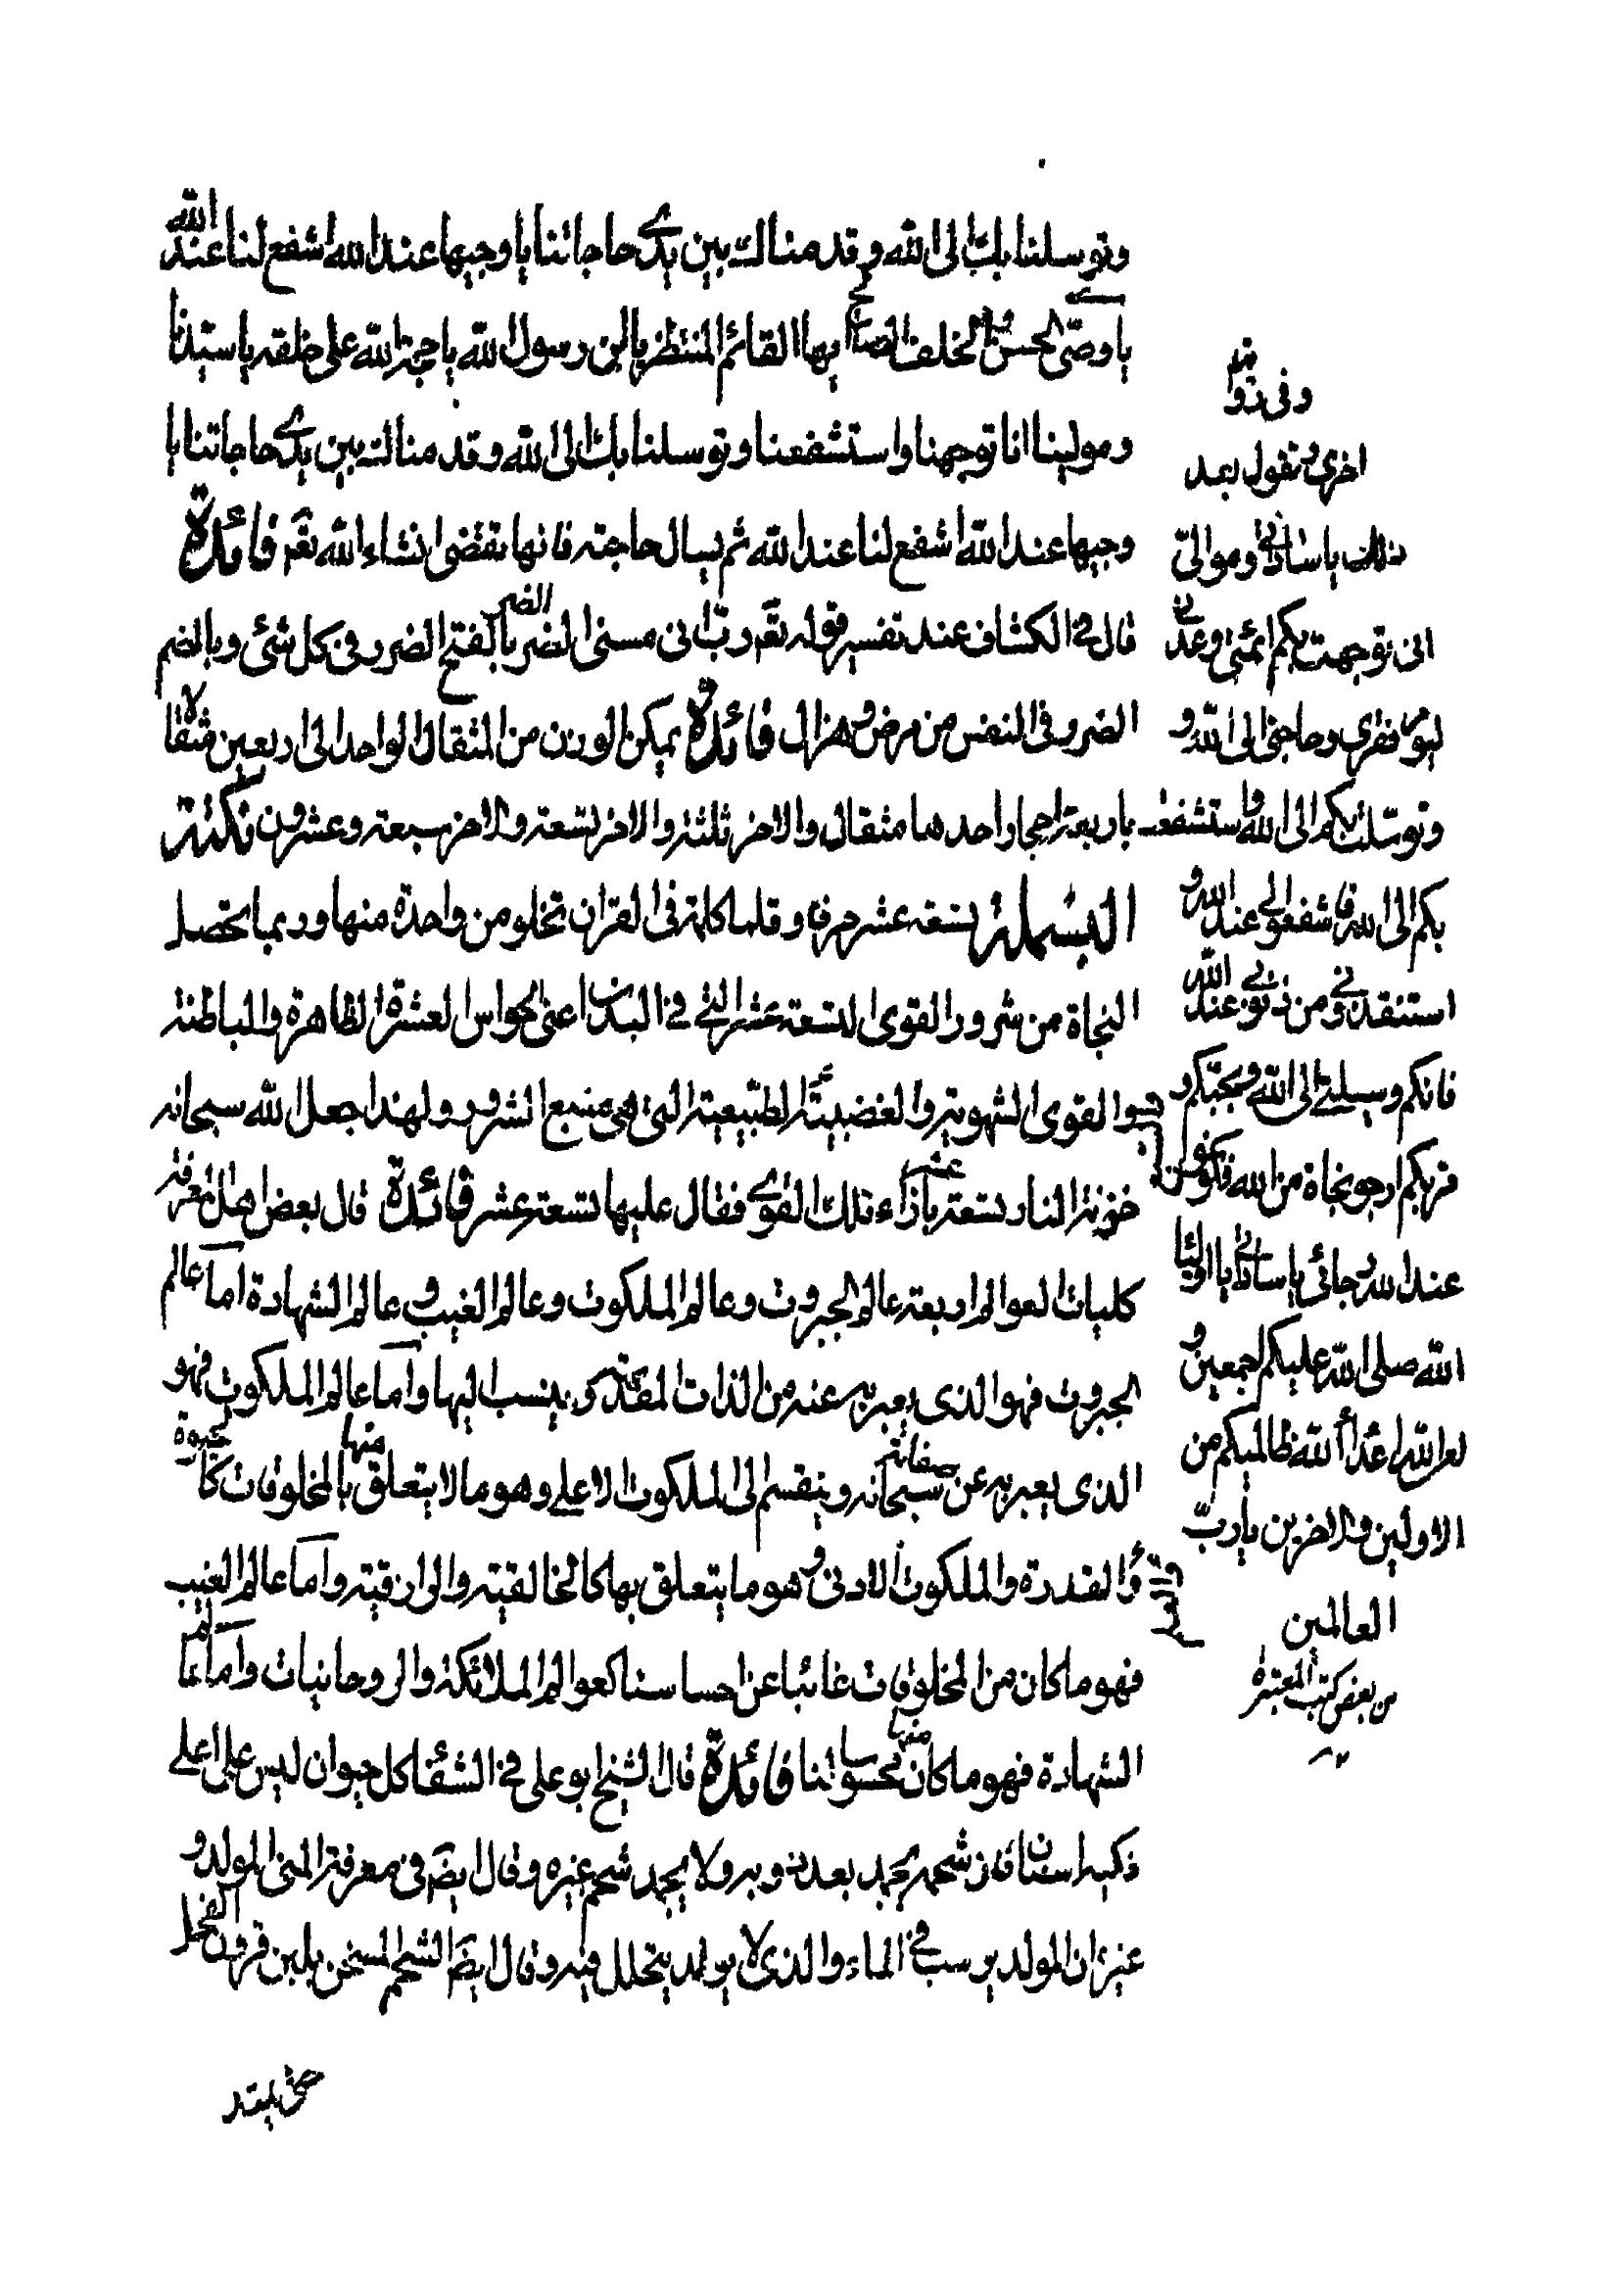 وتوسلنا بك الى الله وقدمناك بين يدي حاجاتنا يا وجيها عند الله اشفع لنا عند الله
يا وصي الحسن والخلف الصالح ايها القائم المنتظر يا ابن رسول الله يا حجة الله على خلقه يا سيدنا
ومولينا انا توجهنا واستشفعنا وتوسلنا بك الى الله وقدمناك بين يدي حاجاتنا يا
وجيها عند الله اشفع لنا عند الله ثم يسال حاجته فانها تقضى انشاء الله تعم فائدة
قال في الكشاف عند تفسير قوله تعم رب انى مسنى الضر الضر بالفتح الضرر فى كل شئ وبالضم
الضرر فى النفس من مرض وهزال فائدة يمكن الوزن من المثقال الواحد الى اربعين مثقالا
باربعة احجار احدها مثقال والاخر ثلثة والاخر تسعة والاخر سبعة وعشرون نكتة
البسملة تسعة عشر حرفا وقلما كلمة فى القران تخلو من واحدة منها وربما تحصل
النجاة من شرور القوى التسعة عشر التي في البدن اعنى الحواس العشرة الظاهرة والباطنة
والقوى الشهوية والغضبية والطبيعية التى هى منبع الشرور ولهذا جعل الله سبحانه
خزنة النار تسعة عشر بازاء تلك القوى فقال عليها تسعة عشر فائدة قال بعض اهل المعرفة
كليات العوالم اربعة عالم الجبروت وعالم الملكوت وعالم الغيب وعالم الشهادة اما عالم
الجبروت فهو الذى يعبر به عنه من الذات المقدسة وينسب اليها واما عالم الملكوت فهو
الذى يعبر به عن صفاته سبحانه وينقسم الى الملكوت الاعلى وهو ما لا يتعلق منها بالمخلوقات كالحيوة
والقدرة والملكوت الادنى وهو ما يتعلق بها كالخالقية والرازقية واما عالم الغيب
فهو ما كان من المخلوقات غائبا عن احساسنا كعوالم الملائكة والروحانيات واما عالم
الشهادة فهو ما كان منها محسوسا لنا فائدة قال الشيخ ابو على فى الشفا كل حيوان ليس على اعلى
فكيه اسنان فان شحمه يجمد بعد ذوبه ولا يجمد شحم غيره وقال ايضم فى معرفة المنى المولد و
غيره ان المولد يرسب في الماء والذى لا يولد يتحلل فيه وقال ايضم الشحم المسخن يلين قرون الفحل
حتى يمتد
وفى رواية
اخرى وتقول بعد
ذلك يا ساداتي وموالى
انى توجهت بكم ائمتى وعدتي
ليوم فقرى وحاجتى الى الله و
وتوسلت بكم الى الله واستشفعت
بكم الى الله فاشفعوا لى عند الله و
استنقذوني من ذنوبي عند الله
فانكم وسيلتي الى الله وبحبكم و
قربكم ارجو نجاة من الله فكونوا
عند الله رجائى يا ساداتي يا اولياء
الله صلى الله عليكم اجمعين و
لعن الله اعداء الله ظالميكم من
الاولين والاخرين يا رب
العالمين
من بعض كتب المعتبرة